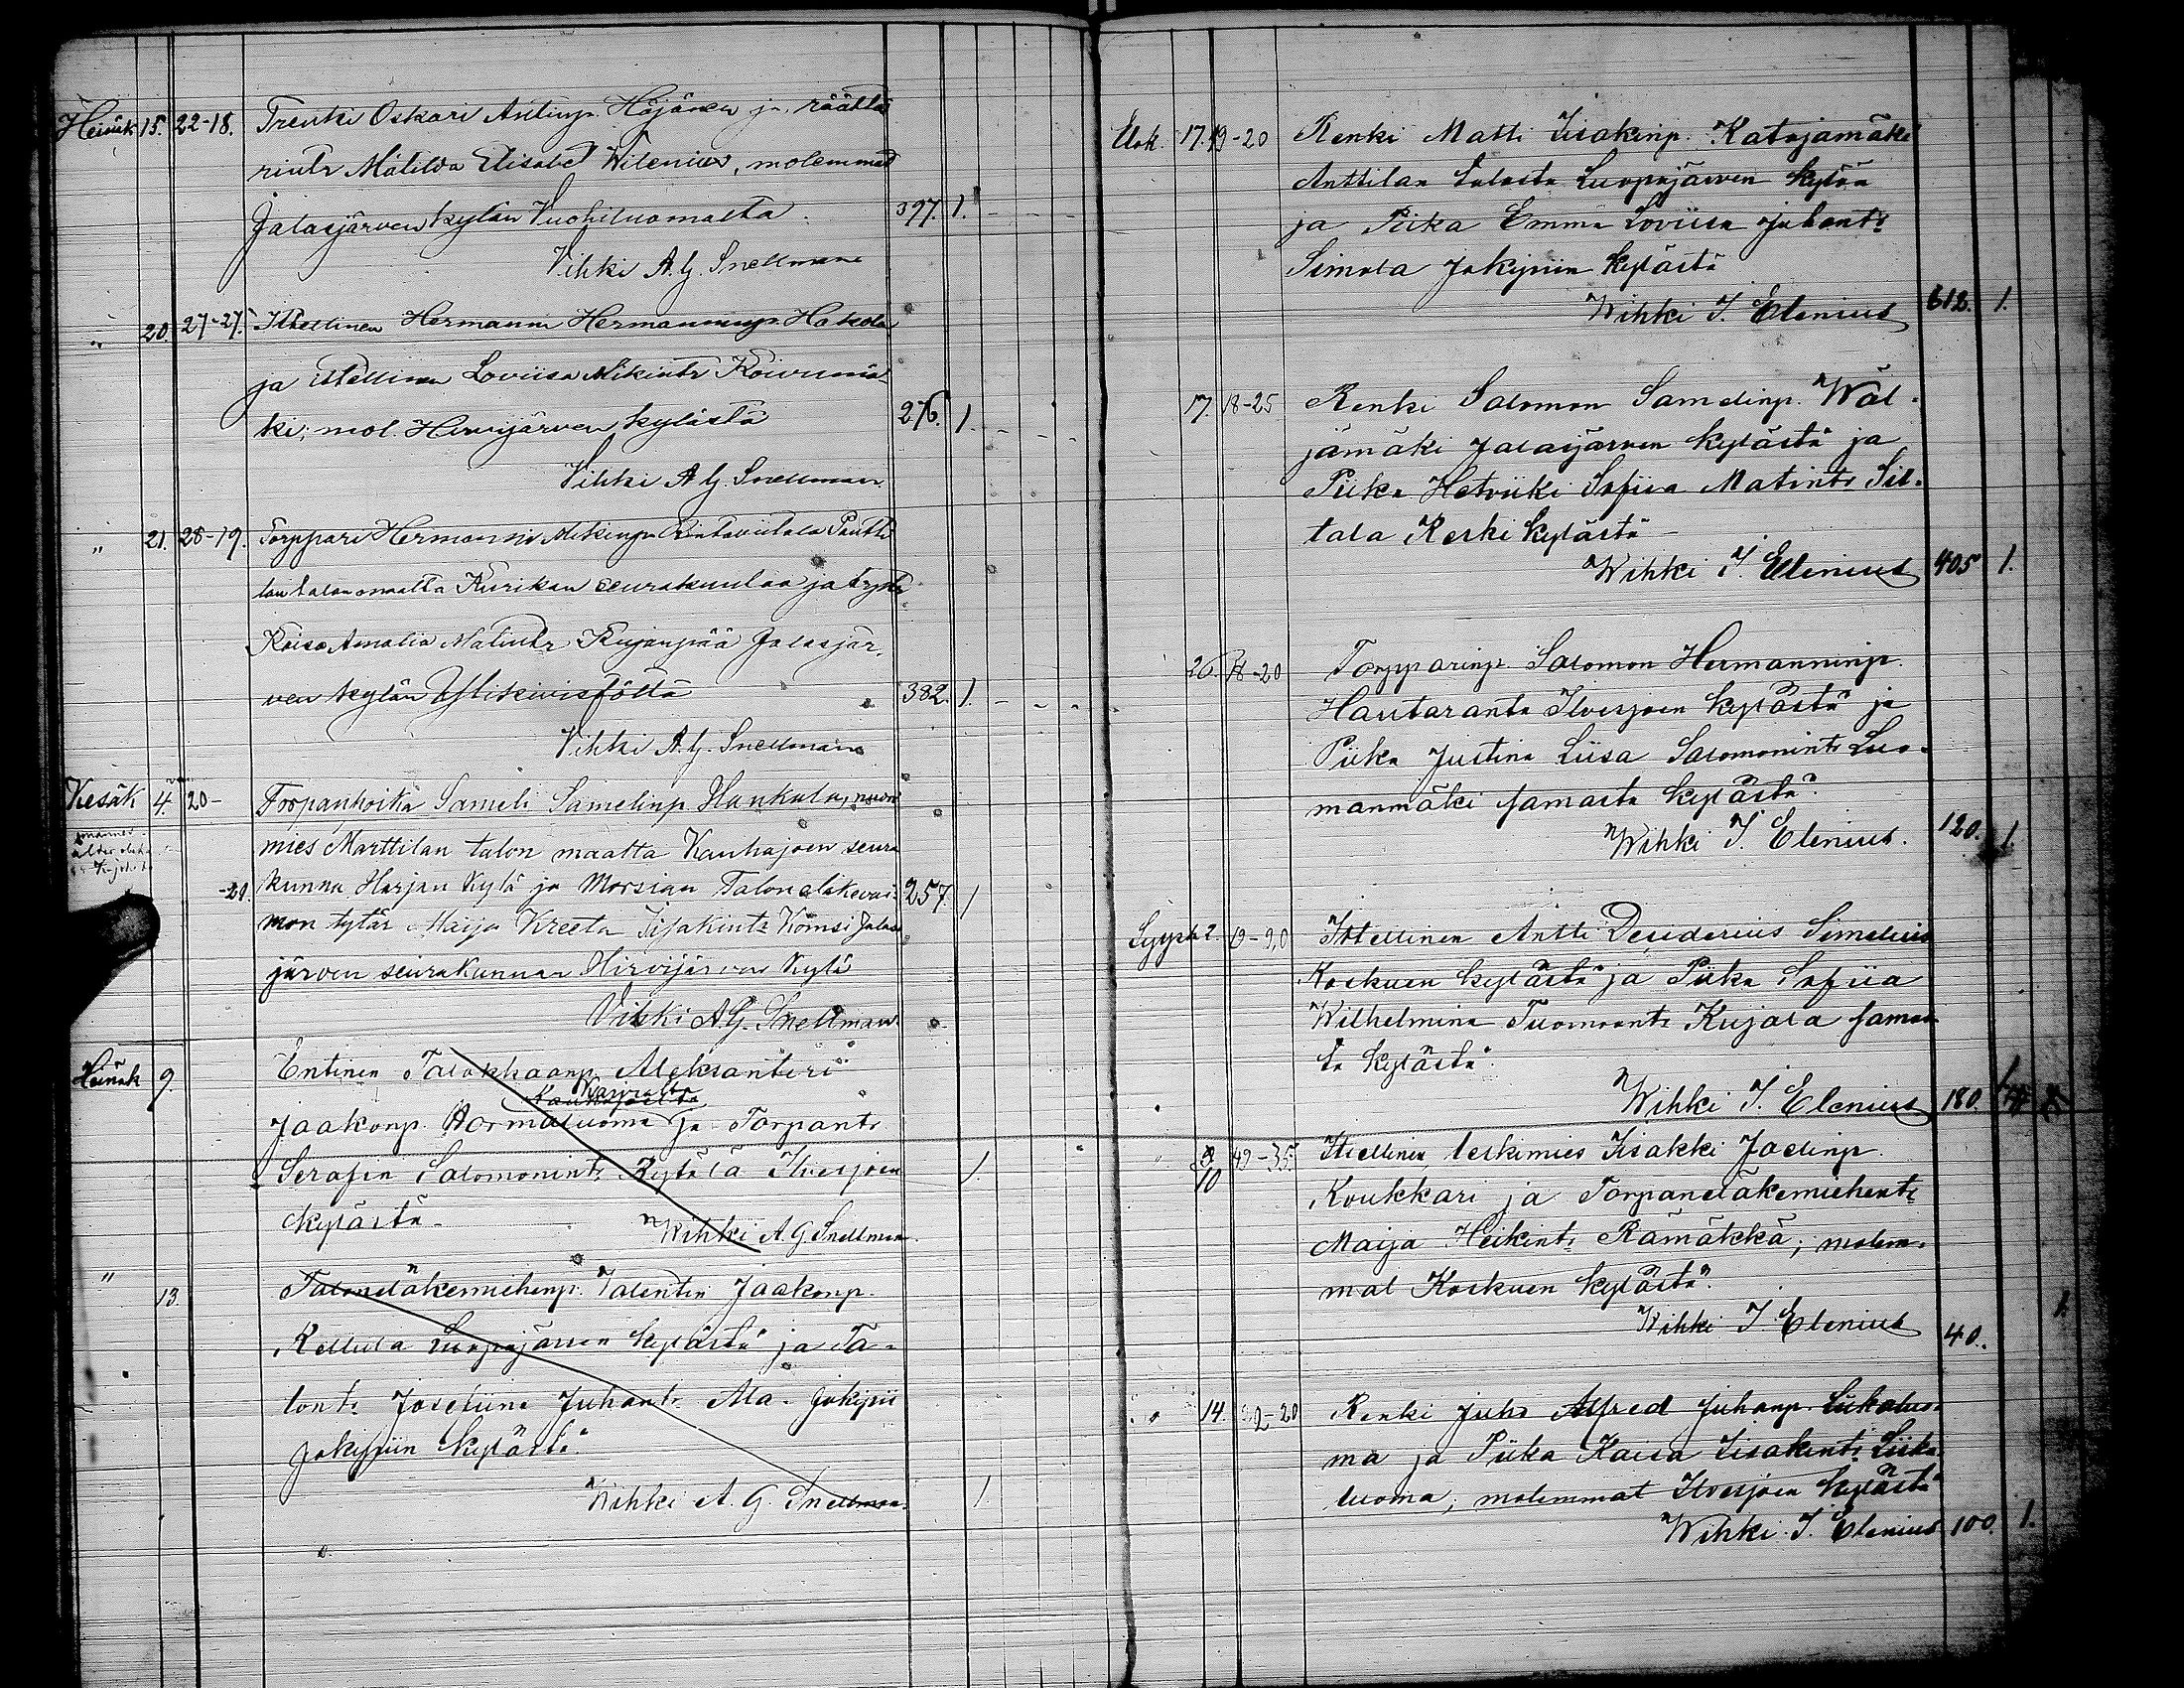 Heinäk 15. 22-18. Trenki Oskari Antinp. Höjänen ja räättä
rintr Matilda Elisabet Wilenius, molemmat
Jalasjärven kylän Vuohiluomalta 397. 1.
Vihki A. G. Snellman
" 20. 27-27. Itsellinen Hermanni Hermanninp. Hakola
ja itsellinen Loviisa Mikintr Koivumä-
ki; mol. Hirvijärven kylästä 276. 1.
Vihki A G. Snellman
" 21. 28-19. Torppari Hermanni Mikinp. Rintaviitala
lan talon maalta Kurikan seurakuntaa ja
Kaisa Amalia Matintr Kujanpää Jalasjär-
ven kylän Ylikivistöltä 382. 1.
Vihki A. G. Snellman
Kesäk 4. 20- Torpanpoika Sameli Samelinp. Hankala, nuori
mies Marttilan talon maalta Kauhajoen seura
-29. kunna Harjan kylä ja Morsian Talon eläkevai-
257. 1
mon tytär Maija Kreeta Iisakintr Komsi Jalas
järven seurakunnan Hirvijärven kylä
Vihki A G. Snellman
Heinäk 9. Entinen Talokkaanp. Aleksanteri
Kauhajoelta
Jaakonp. Hormaluoma ja Torpantr.
Serafin Salomonintr. Rytälä Ilvesjoen 1.
kylästä
Wihki A. G Snellman.
" 13. Talon eläkemiehenp. Valentin Jaakonp.
Kellula Luopajärven kylästä ja Ta-
lontr. Josefiina Juhantr. Ala-Jokipii
Jokipiin kylästä.
Wihki A. G. Snellman. 1
Elok. 17. 19-20 Renki Matti Iisakinp. Katajamäki
Anttilan talosta Luopajärven kylän
ja Piika Emma Loviisa Juhantr.
Simola Jokipiin kylästä
Wihki I. Elenius 612. 1.
17. 18-25 Renki Salomon Samelinp. Wäl-
jämäki Jalasjärven kylästä ja
Piika Hetviiki Sofiia Matintr. Sil-
tala Keski kylästä
Wihki I. Elenius 405 1.
26. 18-20 Torpparinp. Salomon Hermanninp.
Hautaranta Ilvesjoen kylästä ja
Piika Justina Liisa Salomonintr. Luo-
manmäki samasta kylästä.
Wihki I. Elenius. 120. 1.
Syysk 2. 19-20 Itsellinen Antti Desiderius Simelius
Koskuen kylästä ja Piika Sofiia
Wilhelmina Tuomaantr. Kujala samas
ta kylästä.
Wihki I. Elenius 180.
10 49-35. Itsellinen, leskimies Iisakki Joelinp.
Koukkari ja Torpaneläkemiehentr.
Maija Heikintr. Rämäkkä; molem-
mat Koskuen kylästä.
Wihki I. Elenius 40. 1.
" 14. 22-20 Renki Juho Alfred Juhanp. Liikaluo-
ma ja Piika Kaisa Iisakintr. Liika
luoma; molemmat Ilvesjoen kylästä
Wihki I. Elenius 100. 1.